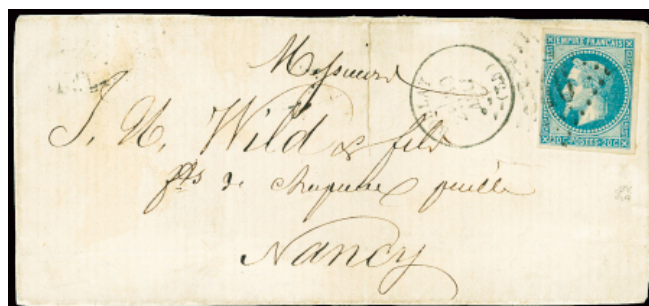 Messieurs
J. N. Wild & fils
fts de chapeaux paille
Nancy
EMPIRE FRANÇAIS
20C POSTES 20C